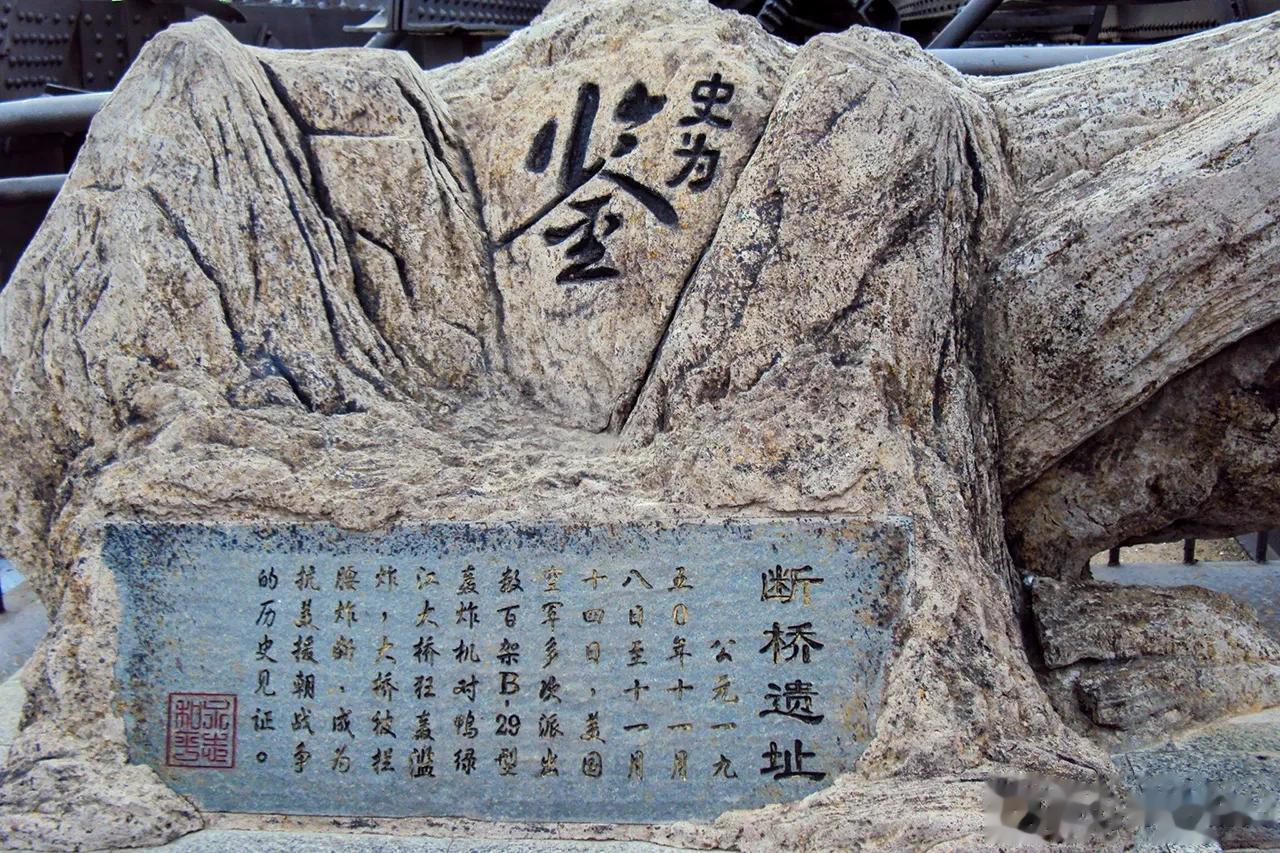 史为
鉴
断桥遗址
公元一九
五0年十一月
八日至十一月
十四日，美国
空军多次派出
数百架B-29型
轰炸机对鸭绿
江大桥狂轰滥
炸，大桥被拦
腰炸断，成为
抗美援朝战争
的历史见证。
和平